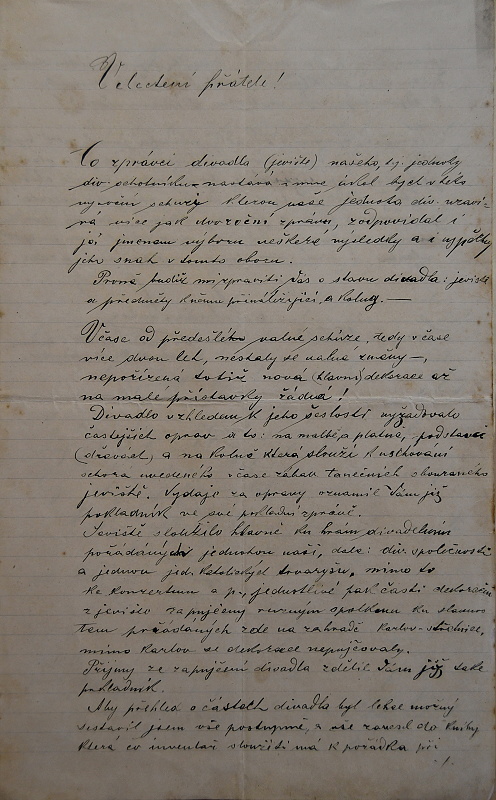 Velectění přátele!
Co zprávci divadla (jeviště) našeho, t.j. jednoty
div. ochotníků nastává i mne úkol bych v této
výroční schůzi kterou naše jednota div. uzaví-
rá více jak dvoroční zprávu, zodpovídal i
já jmenem výboru veškeré výsledky a i
jeho snah v tomto oboru.
Prvně budiž mi zpraviti Vás o stavu divadla: jeviště
a předměty k němu přináležející, a kolny. —
Včase od předešlé valné schůze, tedy v čase
více dvou let, nestaly se valné změny —,
nepořízená totiž nová (hlavní) dekorace až
na malé přístavky žádná!
Divadlo vzhledem k jeho sešlosti vyžadovalo
častějších oprav a to: na malbě, a plátně, podstavci
(dřávěch) a na kolně která slouží k uschování
shora uvedeného v čase zábav tanečních
jeviště. Výdaje za opravy oznámil Vám již
pokladník ve své pokladní zprávě.
Jeviště sloužilo hlavně ku hrám divadelním
pořádaných jednotou naší, dále: div. společností
a jednou jed. katolických tovaryšů, mimo to
ke koncertům a p., jednotlivé pak části dekorační
z jeviště zapůjčeny různým spolkům ku slavno
tem pořádaných zde na zahradě Karlov-střelnice,
mimo Karlov se dekorace nepůjčovaly.
Příjmy ze zapůjčení divadla zdělil Vám již také
pokladník.
Aby přehled o částech divadla byl lehce možný
sestavil jsem vše postupně, a vše zanesl do knihy
která co inventář sloužiti má k pořádku při